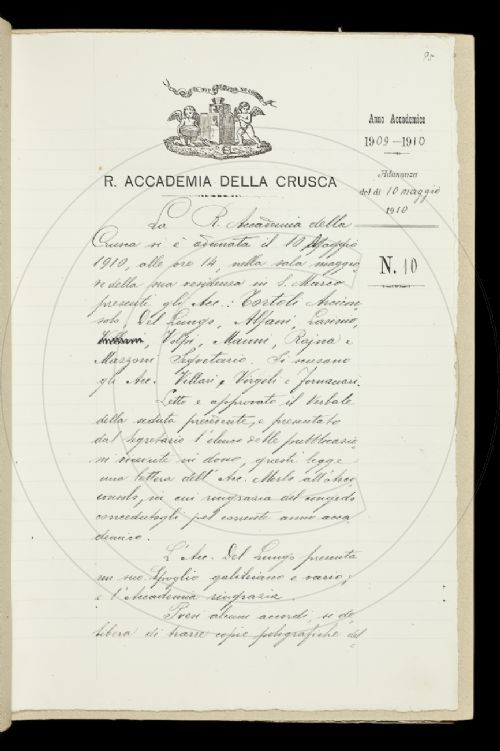 R. ACCADEMIA DELLA CRUSCA
Anno Accademico
1909-1910
Adunanza
del dì 10 maggio
1910
N. 10
La R. Accademia della
Crusca si è adunata il 10 Maggio
1910, alle ore 14, nella sala maggio
re della sua residenza in S. Marco
presenti gli Acc.: Tortoli Arcicon
solo, Del Lungo, Alfani,
Volpi, Mazzoni, Rajna e
Mazzoni Segretario. Si scusano
gli Acc. Villari, Vergoli e Fornaciari.
Letto e approvato il verbale
della seduta precedente, e presentato
dal Segretario l'elenco delle pubblicazio
ni ricevute in dono, questi legge
una lettera dell'Acc. Merlo all'Arci
consolo, in cui ringrazia del congedo
concedutogli pel corrente anno acca
demico.
L'Acc. Del Lungo presenta
un suo Spoglio galileiano e vario;
e l'Accademia ringrazia.
Presi alcuni accordi, si de
libera di trarre copie poligrafiche del